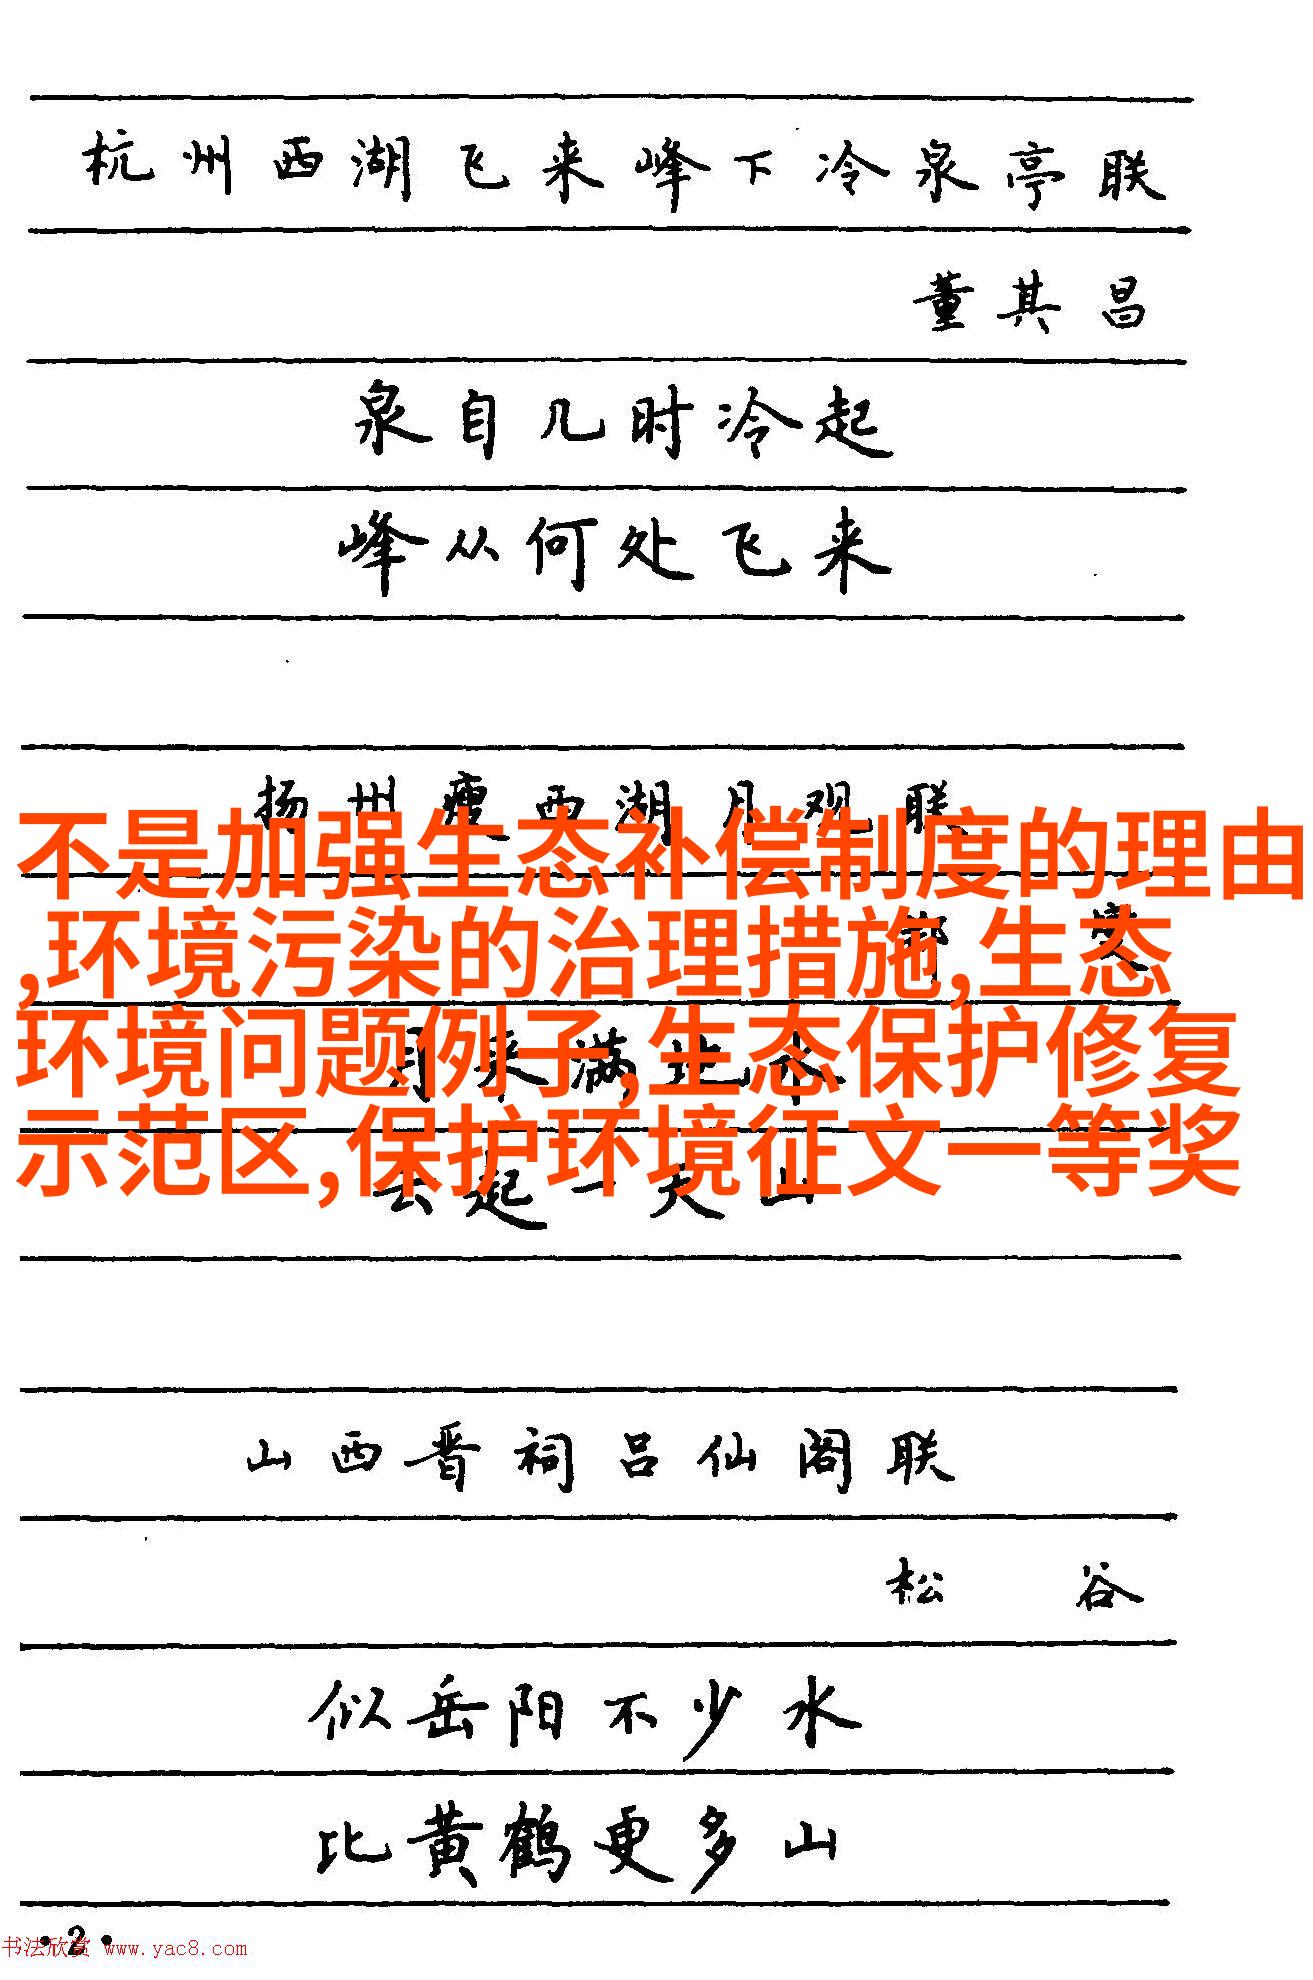 杭州西湖飞来峰下冷泉亭联
董其昌
泉自几时冷起
峰从何处飞来
扬州瘦西湖月观联
不是加强生态补偿制度的理由
,环境污染的治理措施,生态
环境问题例子,生态保护修复
月来满地水
示范区,保护环境征文一等奖
云起一天山
山西晋祠吕仙阁联
松谷
似岳阳不少水
比黄鹤更多山
·2·
书法欣赏 www.yac8.com